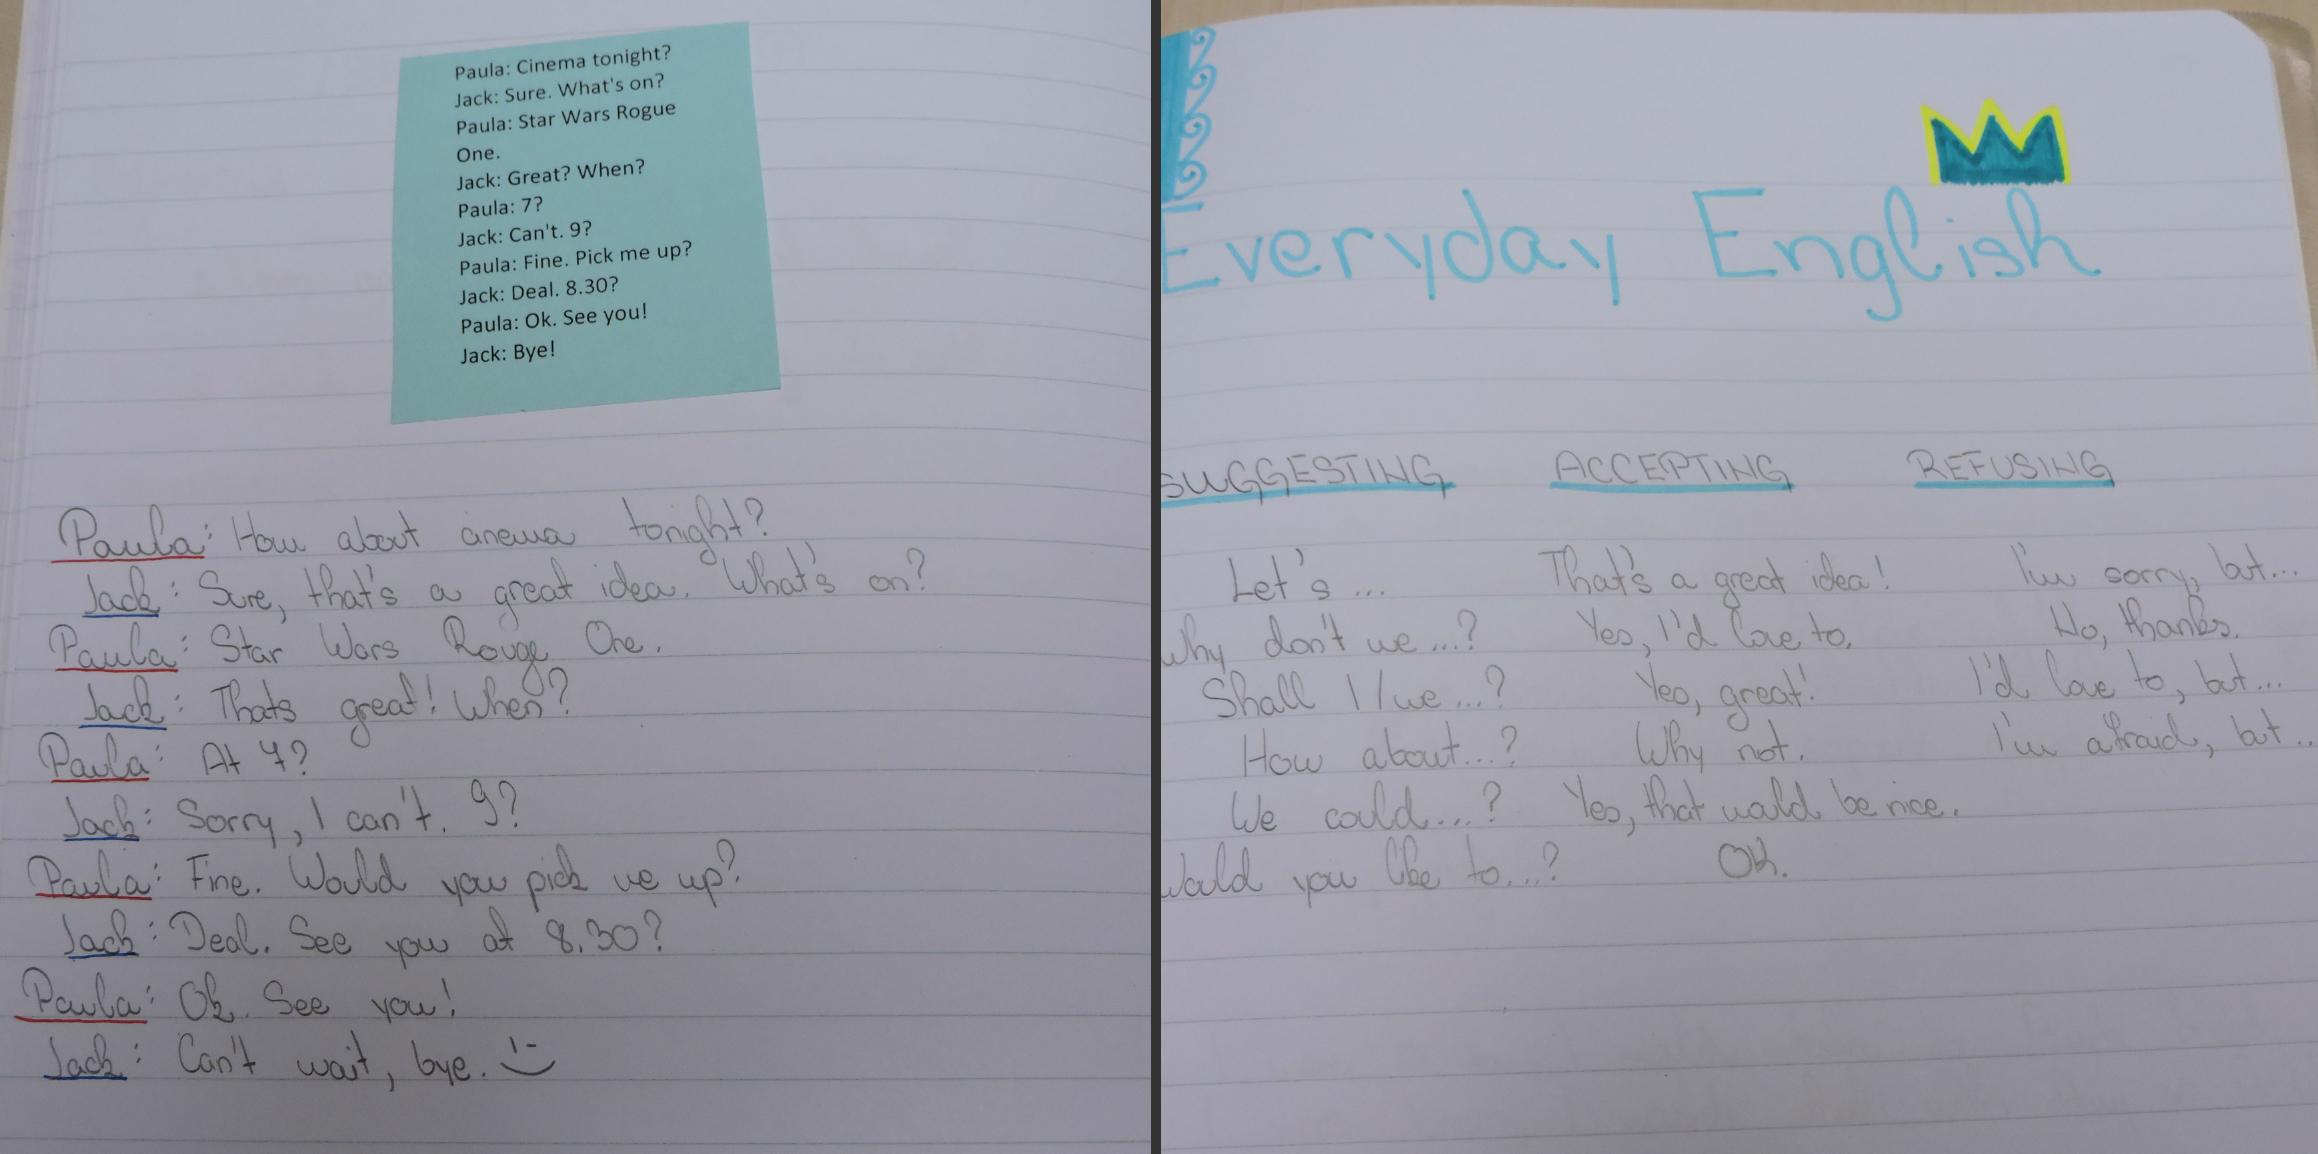 Paula: Cinema tonight?
Jack: Sure. What's on?
Paula: Star Wars Rogue
One.
Jack: Great? When?
Paula: 7?
Jack: Can't. 9?
Paula: Fine. Pick me up?
Jack: Deal. 8.30?
Paula: Ok. See you!
Jack: Bye!
Paula: How about cinema tonight?
Jack: Sure, that's a great idea. What's on?
Paula: Star Wars Rouge One.
Jack: Thats great! When?
Paula: At 7?
Jack: Sorry, I can't. 9?
Paula: Fine. Would you pick me up?
Jack: Deal. See you at 8.30?
Paula: Ok. See you!
Jack: Can't wait, bye.
Everyday English
SUGGESTING ACCEPTING REFUSING
Let's ... That's a great idea! I'm sorry, but...
Why don't we ...? Yes, I'd love to. No, thanks.
Shall I/we ...? Yes, great! I'd love to, but...
How about...? Why not. I'm afraid, but ..
We could....? Yes, that would be nice.
Would you like to....? Ok.